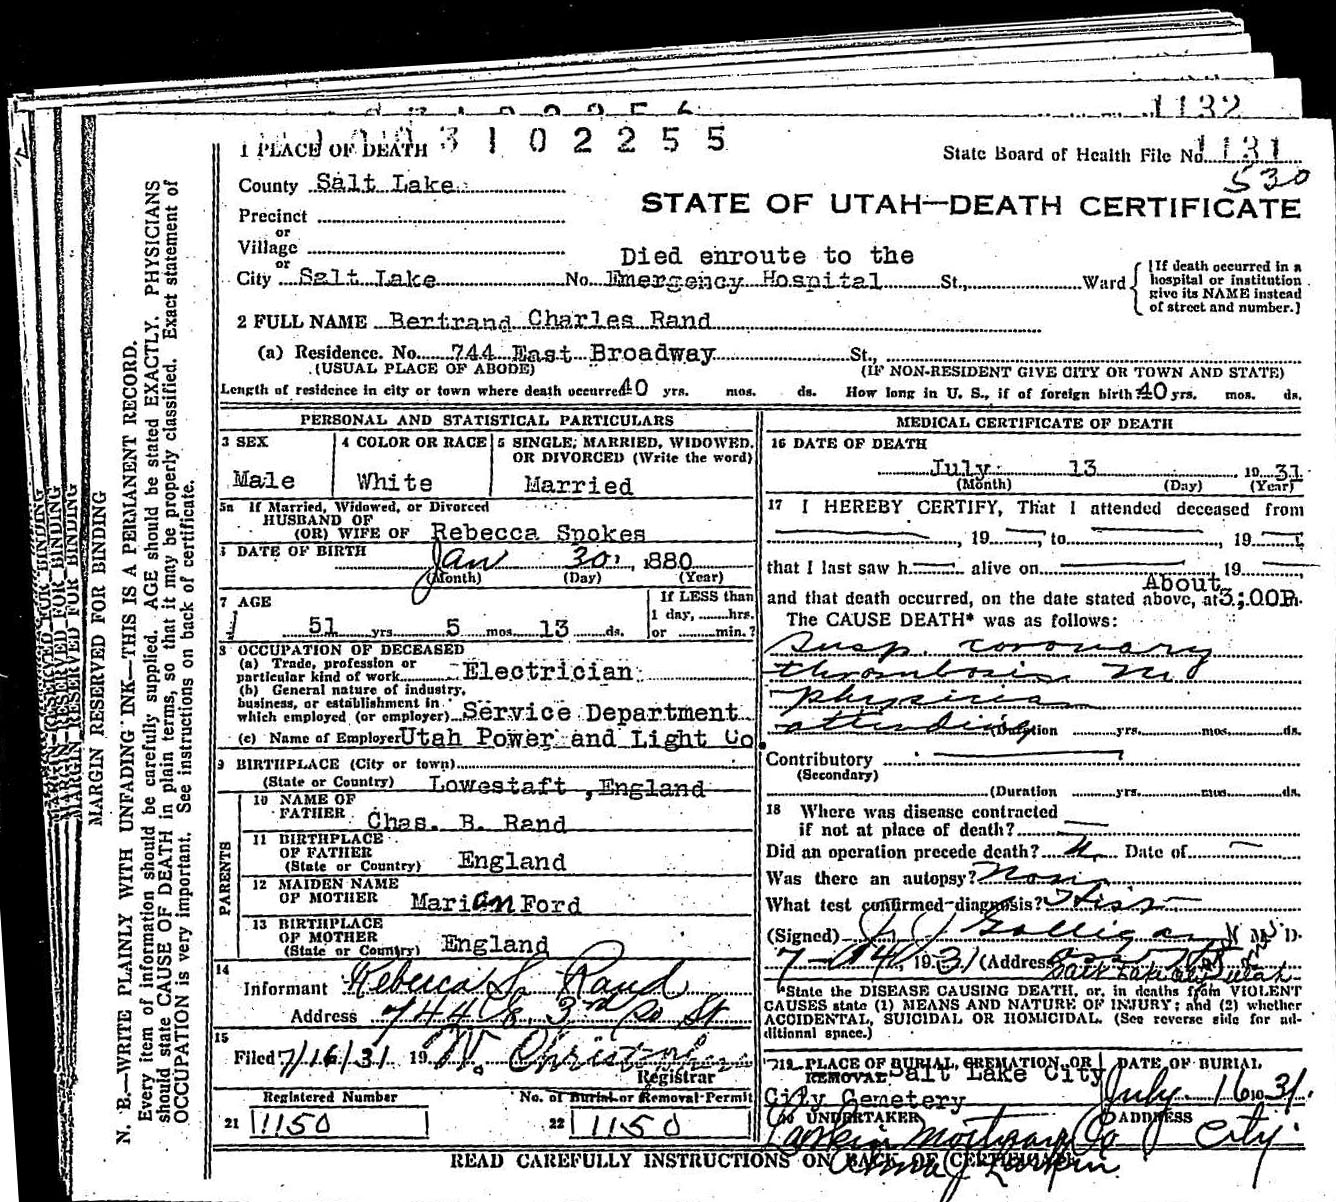 1132
3 1 0 2 2 5 5
1 PLACE OF DEATH
State Board of Health File No. 1131
530
County Salt Lake
STATE OF UTAH—DEATH CERTIFICATE
Precinct
or
Village
or
Died enroute to the
City Salt Lake No. Emergency Hospital St., Ward
[If death occurred in a hospital or institution give its NAME instead of street and number.]
2 FULL NAME Bertrand Charles Rand
(a) Residence. No. 744 East Broadway St.,
(USUAL PLACE OF ABODE) (IF NON-RESIDENT GIVE CITY OR TOWN AND STATE)
Length of residence in city or town where death occurred 40 yrs. mos. ds. How long in U. S., if of foreign birth? 40 yrs. mos. ds.
PERSONAL AND STATISTICAL PARTICULARS
3 SEX
Male
4 COLOR OR RACE
White
5 SINGLE, MARRIED, WIDOWED, OR DIVORCED (Write the word)
Married
5a If Married, Widowed, or Divorced
HUSBAND OF
(OR) WIFE OF Rebecca Spokes
DATE OF BIRTH Jan 30, 1880
(Month) (Day) (Year)
7 AGE
51 yrs 5 mos. 13 ds.
If LESS than
1 day, hrs.
or min.?
8 OCCUPATION OF DECEASED
(a) Trade, profession or
particular kind of work Electrician
(b) General nature of industry,
business, or establishment in
which employed (or employer) Service Department
(c) Name of Employer Utah Power and Light Co.
9 BIRTHPLACE (City or town)
(State or Country) Lowestaft, England
PARENTS
10 NAME OF
FATHER Chas. B. Rand
11 BIRTHPLACE
OF FATHER
(State or Country) England
12 MAIDEN NAME
OF MOTHER Marian Ford
13 BIRTHPLACE
OF MOTHER
(State or Country) England
14
Informant Rebecca S. Rand
Address 744 E. 3rd So St
15
Filed 7/16/31 19 W.
Registrar
Registered Number
21 1150
No. of Burial or Removal Permit
22 1150
MEDICAL CERTIFICATE OF DEATH
16 DATE OF DEATH
July 13 19 31
(Month) (Day) (Year)
17 I HEREBY CERTIFY, That I attended deceased from
, 19 , to , 19
that I last saw h alive on 19
About
and that death occurred, on the date stated above, at 3:00P m.
The CAUSE DEATH* was as follows:
Susp. coronary
thrombosis no
physician
attending
(Duration yrs. mos. ds.
Contributory
(Secondary)
(Duration yrs. mos. ds.
18 Where was disease contracted
if not at place of death?
Did an operation precede death? Date of
Was there an autopsy?
What test confirmed diagnosis? Hist
(Signed) J J Galligan M D.
7-14, 1931 (Address
Salt Lake City Utah
*State the DISEASE CAUSING DEATH, or, in deaths from VIOLENT
CAUSES state (1) MEANS AND NATURE OF INJURY; and (2) whether
ACCIDENTAL, SUICIDAL OR HOMICIDAL. (See reverse side for additional space.)
19 PLACE OF BURIAL, CREMATION, OR
REMOVAL Salt Lake City
City Cemetery
DATE OF BURIAL
July 16 1931.
20 UNDERTAKER
Larkin Mortuary Co
ADDRESS
City
READ CAREFULLY INSTRUCTIONS ON BACK OF CERTIFICATE
Larkin
MARGIN RESERVED FOR BINDING
N. B.—WRITE PLAINLY WITH UNFADING INK—THIS IS A PERMANENT RECORD.
Every item of information should be carefully supplied. AGE should be stated EXACTLY. PHYSICIANS
should state CAUSE OF DEATH in plain terms, so that it may be properly classified. Exact statement of
OCCUPATION is very important. See instructions on back of certificate.